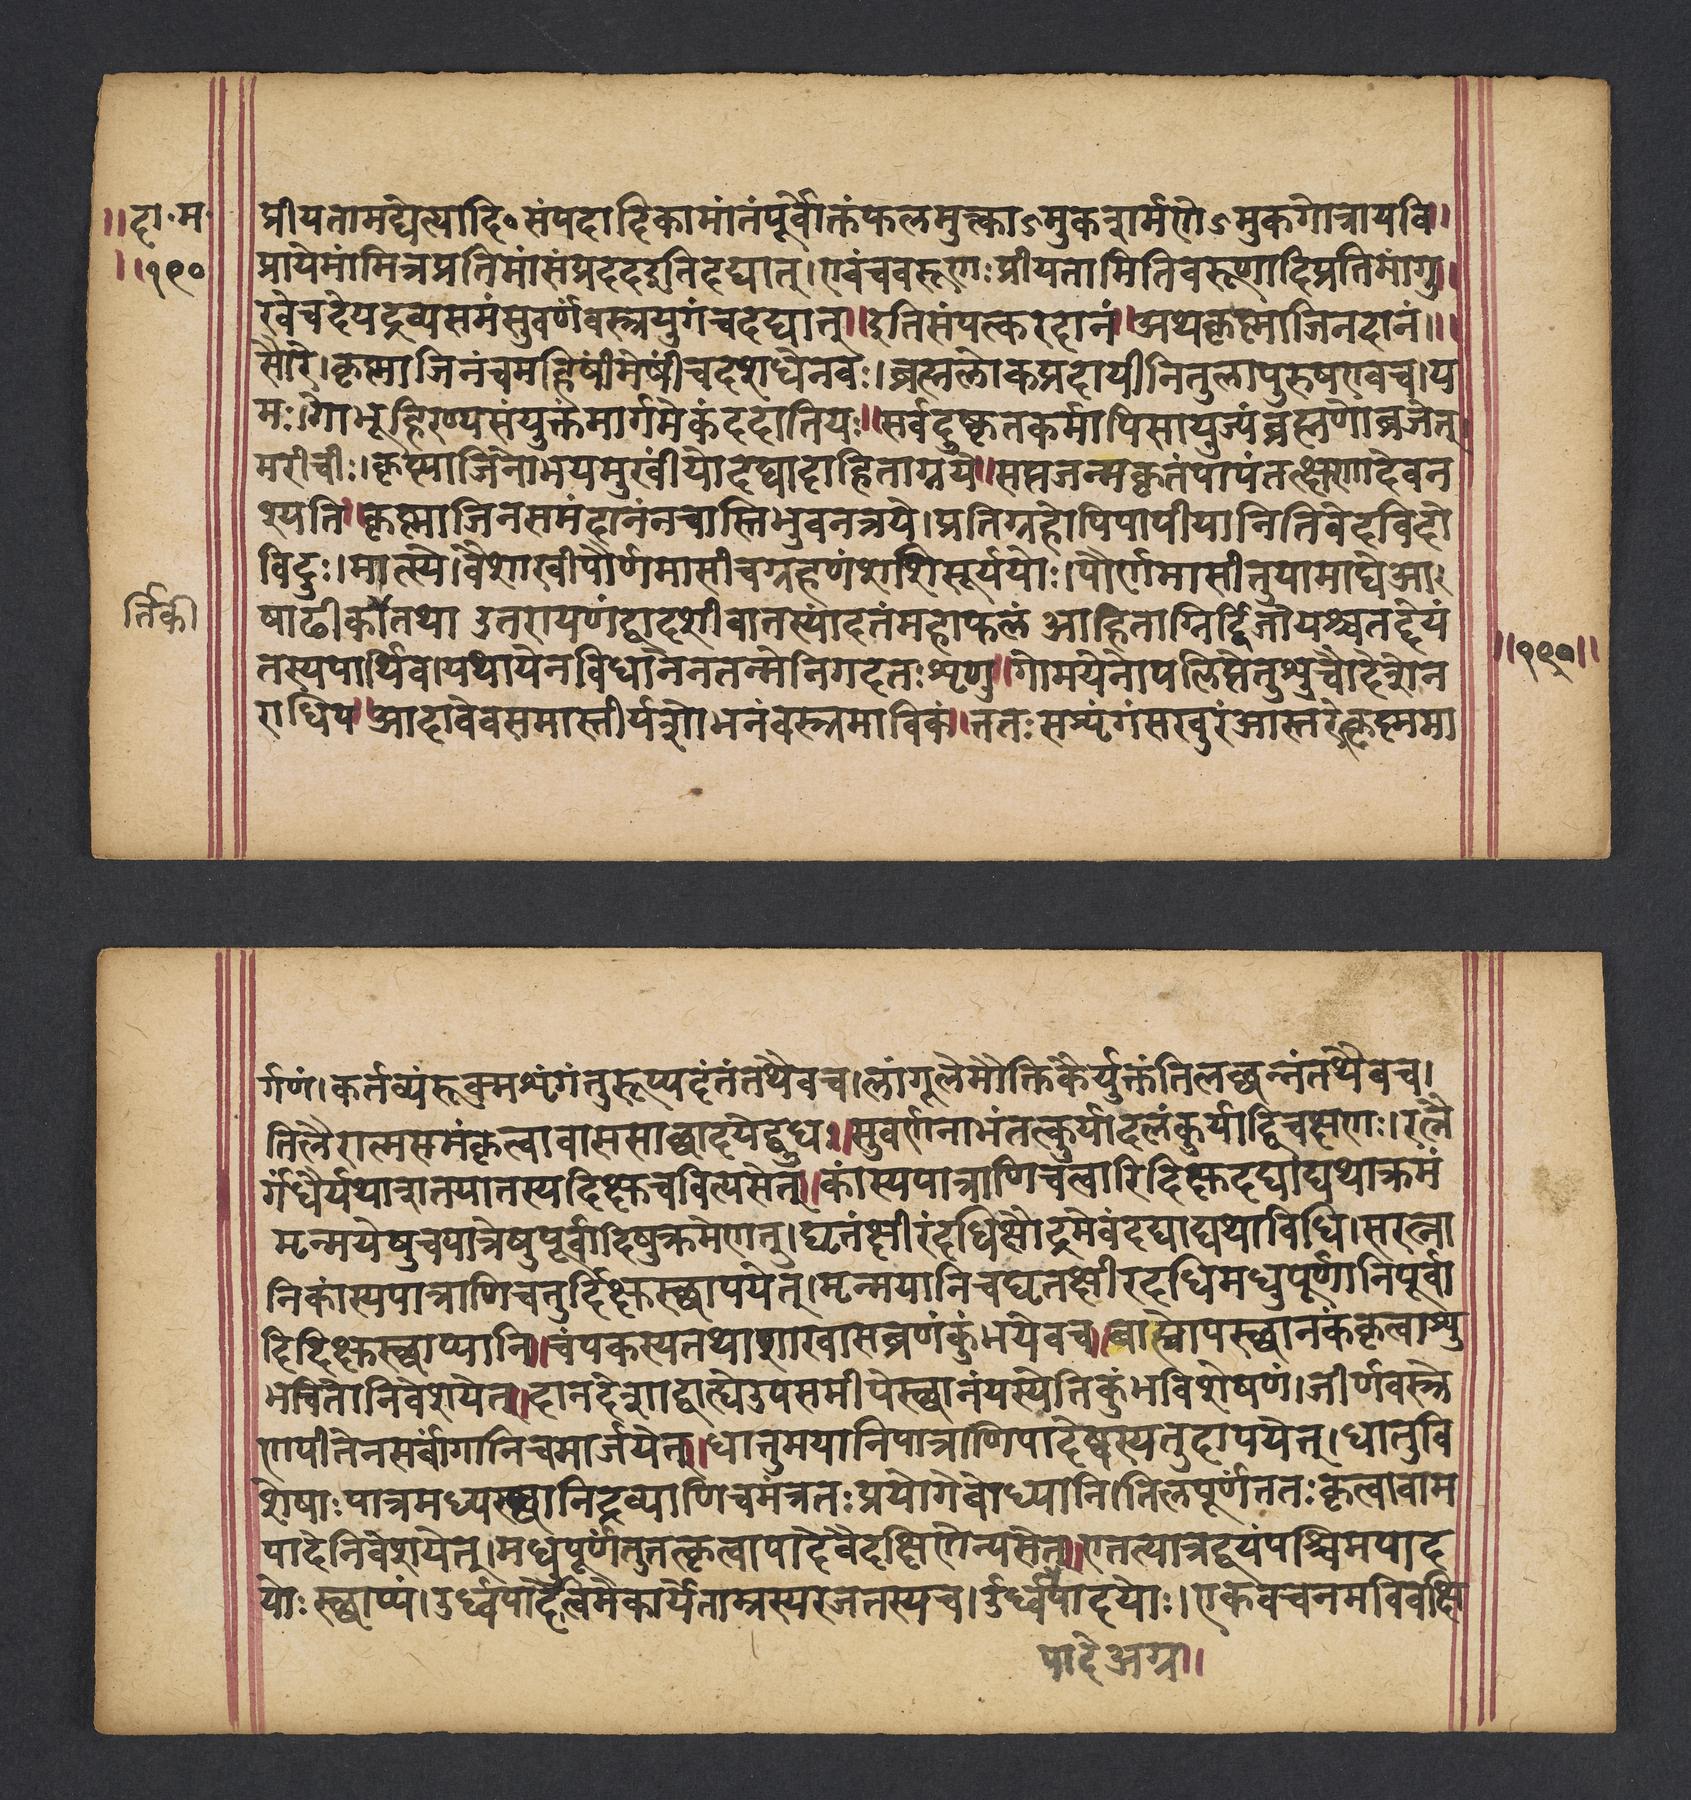 ॥दा॰म॰
॥१९०
प्रीयतामद्येत्यादि॰संपदादिकामांतंपूर्वोक्तंफलमुत्क्काऽमुकशर्मणेऽमुकगोत्रायवि॥
प्रायेमांमित्रप्रतिमांसंप्रददइतिदद्यात्।एवंचवरुणःप्रीयतामितिवरूणादिप्रतिमांगु।
रवेचदेयद्रव्यसमंसुवर्णंवस्त्रयुगंचदद्यात्॥इतिसंपत्करदानं॥अथकृष्णाजिनदानं॥॥
सौरे।कृष्णाजिनंचमहिषींमेषींचदशधेनवः।ब्रह्मलोकप्रदायीनितुलापुरुषएवच।य
मः।गोभूहिरण्यसंयुक्तंमार्गमेकंददातियः॥सर्वदुष्कृतकर्मापिसायुज्यंब्रह्मणोव्रजेत्
मरीचीः।कृष्णाजिनोभयमुखींयोदद्यादाहिताग्नये॥सप्तजन्मकृतंपापंतत्क्षणादेवन
श्यति॥कृष्णाजिनसमंदानंनचास्तिभुवनत्रये।प्रतिग्रहोपिपापीयानितिवेदविदो
विदुः।मात्स्ये।वैशाखीपौर्णमासीचग्रहणंशशिसूर्ययोः।पौर्णमासीतुयामाघेआ
षाढीकातथा उतरायणंद्वादशीवातस्यांदतंमहाफलं आहिताग्निर्द्विजोयश्चतद्देयं
र्तिकी
तस्यपार्थिव।यथायेनविधानेनतन्मेनिगदतःशृणु॥गोमयेनोपलिप्तेतुशुचौदेशेन
राधिप॥आदावेवसमास्तीर्यशोभनंवस्त्रमाविकं॥ततःसशृंगंसखुरंआस्तरेत्कृष्णमा
॥१९०॥
र्गणं।कर्तव्यंरूक्मशृंगंतुरूप्यदंतंतथैवच।लांगूलेमौक्तिकैर्युक्तंतिलछन्नंतथैवच।
तिलैरात्मसमंकृत्वावाससाछादयेद्बुधः॥सुवर्णनाभंतत्कुर्यादलंकुर्याद्विचक्षणः।रत्नै
र्गंधैर्यथाशतयातस्यदिक्षुचविन्यसेत्॥कांस्यपात्राणिचत्वारिदिक्षुदद्याद्यथाक्रमं
मृन्मयेषुचपात्रेषुपूर्वादिषुक्रमेणतु।घृतंक्षीरंदधिक्षौद्रमेवंदद्याद्यथाविधि।सरत्ना
निकांस्यपात्राणिचतुर्दिक्षुस्छापयेत्।मृन्मयानिचघृतक्षीरदधिमधुपूर्णानिपूर्वा
दिदिक्षुस्छाप्यानि॥चंपकस्यतथाशाखासव्रणंकुंभयेवच॥बाह्योपस्छानकंकृत्वाशु
भवितोनिवेशयेत्॥दानदेशाद्बाह्येउपसमीपेस्छानंयस्येतिकुंभविशेषणं।जीर्णवस्त्रे
णपीतेनसर्वांगानिचमार्जयेत्॥धातुमयानिपात्राणिपादेष्वस्यतुदापयेत्।धातुवि
शेषाःपात्रमध्यस्छानिद्रव्याणिचमंत्रतःप्रयोगेबोध्यानि।तिलपूर्णंततःकृत्वावाम
पादेनिवेशयेत्।मधुपूर्णंतुतत्कृत्वापादेवैदक्षिणेन्यसेत्॥एतत्पात्रद्वयंपश्चिमपाद
योःस्छाप्यं।उर्ध्वपादेत्विमेकार्येताम्रस्यरजतस्यच।उर्ध्वपादयोः।एकवचनमविवक्षि
पादेअग्र॥